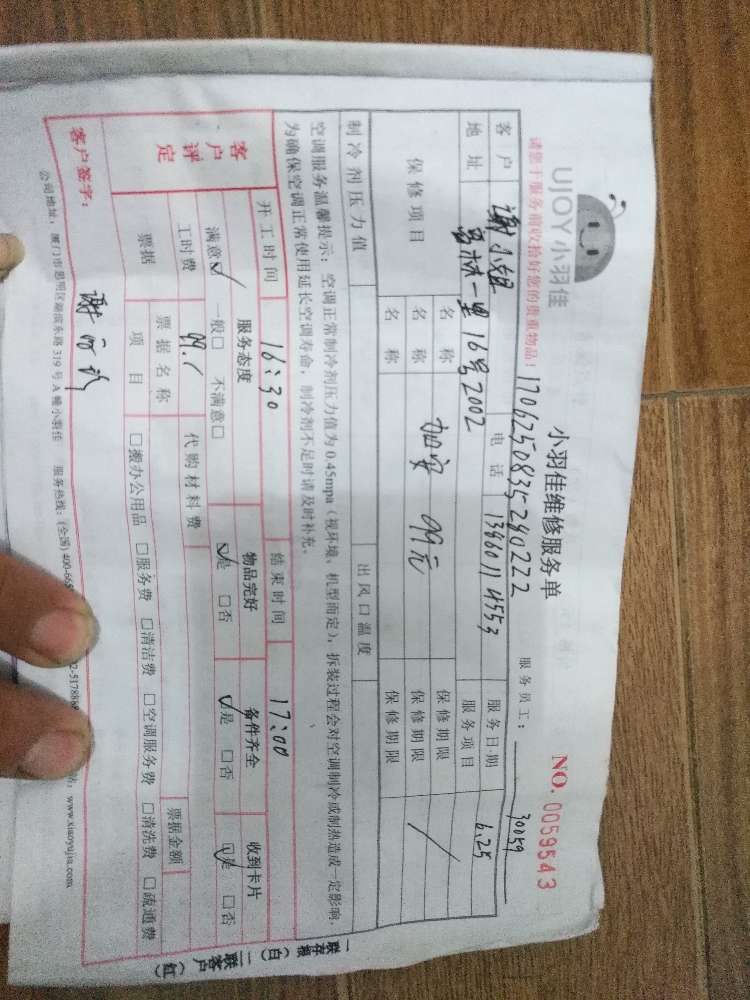 UJOY 小羽佳
小羽佳维修服务单
NO. 0059543
请您于服务前收拾好您的贵重物品!
1706250835290222
服务员工: 30059
客户 谢小姐 电话 13860114553 服务日期 6.25
地址 一里16号2002 服务项目
保修项目 名称 加安 99元 保修期限
名称 保修期限
名称 保修期限
制冷剂压力值 出风口温度
空调服务温馨提示:空调正常制冷剂压力值为0.45mpa(视环境、机型而定),拆装过程会对空调制冷或制热造成一定影响,
为确保空调正常使用延长空调寿命,制冷剂不足时请及时补充。
开工时间 16:30 结束时间 17:00
客户评定 服务态度 物品完好 备件齐全 收到卡片
满意☑ 一般□ 不满意□ ☑是 □否 ☑是 □否 ☑是 □否
工时费 99. 代购材料费
票据 票据名称 票据金额
项目 □搬办公用品 □服务费 □清洁费 □空调服务费 □清洗费 □疏通费
客户签字: 谢
公司地址:厦门市思明区湖滨东路319号A幢小羽佳 服务热线:(全国)400-665 2-517886 www.xiaoyujia.com
一联存根(白) 二联客户(红)